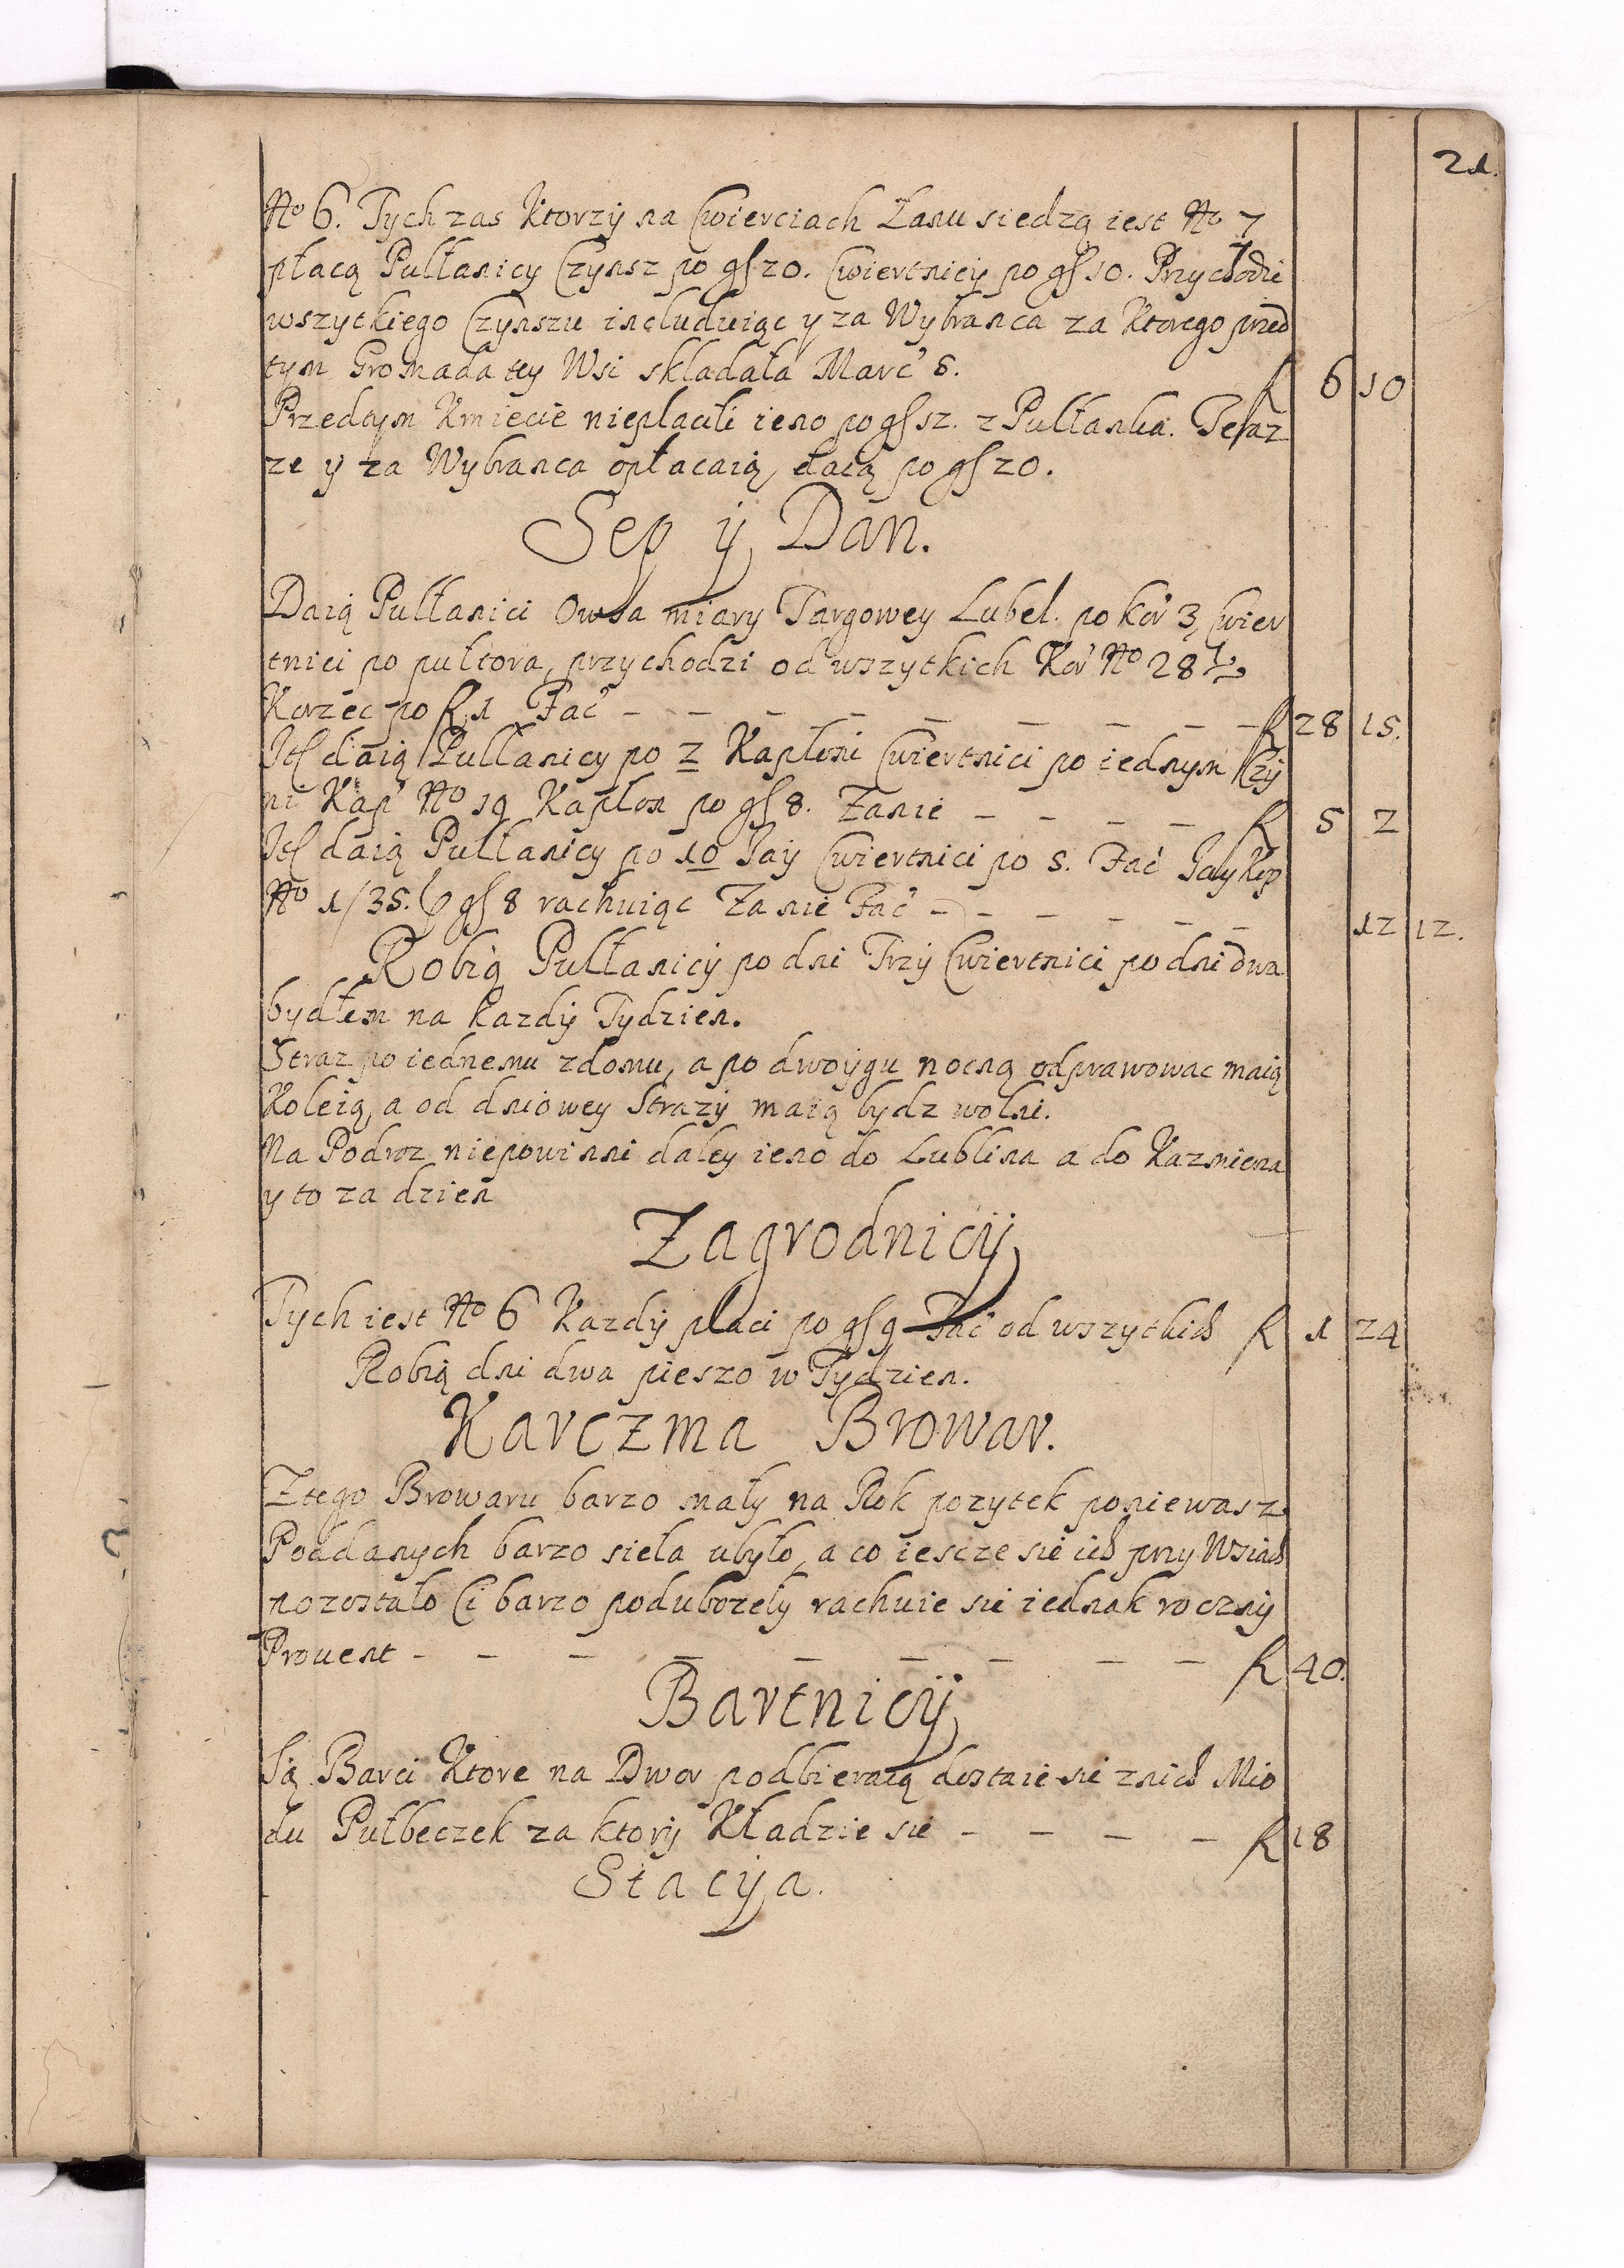 21.
No 6. Tych zas Ktorzy na Cwierciach Łanu siedzą iest No 7
płacą Pułłanicy Czynsz po gs 20. Cwiertnicy po gs 10. Przychodzi
wszytkiego Czynszu includuiąc y za Wybranca za Ktorego przed
tym Gromada tey Wsi składała Marc 8. f 6 10
Przedtym Kmiecie niepłacili ieno po gs 12. z Pułłanka. Teraz
ze y za Wybranca opłacaią, daią po gs 20.
Sep y Dan.
Daią Pułłanici Owsa miary Targowey Lubel. po kor 3, Cwier
tnici po pułtora, przychodzi od wszytkich Kor No 28 ½
Korzec po f 1 Fac — — — — — — — — f 28 15.
It daią Pułłanicy po 2 Kapłoni Cwiertnici po iednym Czy
ni Kap No 19 Kapłon po gs 8. Zanie — — — — f 5 2
It daią Pułłanicy po 10 Jay Cwiertnici po 5. Fac Jay Kop
No 1/35. gs 8 rachuiąc Za nie Fac — — — — — 12 12.
Robią Pułłanicy po dni Trzy Cwiertnici po dni dwa
bydłem na kazdy Tydzien.
Straz po iednemu z domu, a po dwoygu nocną odprawowac maią
Koleią, a od dniowey Strazy maią bydz wolni.
Na Podroz niepowinni daley ieno do Lublina a do Kazmierza
y to za dzien
Zagrodnicy
Tych iest No 6 Kazdy płaci po gs 9 Fac od wszytkich f 1 24
Robią dni dwa pieszo w Tydzien.
Karczma Browar.
Z tego Browaru barzo mały na Rok pozytek poniewasz
Poddanych barzo sieła ubyło, a co ieszcze sie ich przy Wsiach
pozostało Ci barzo podubozeły rachuie sie iednak roczny
Prouent — — — — — — — — — f 40.
Bartnicy
Są Barci Ktore na Dwor podbieraią dostaie sie znich Mio
du Pułbeczek za ktory Kładzie sie — — — — f 18
Stacya.